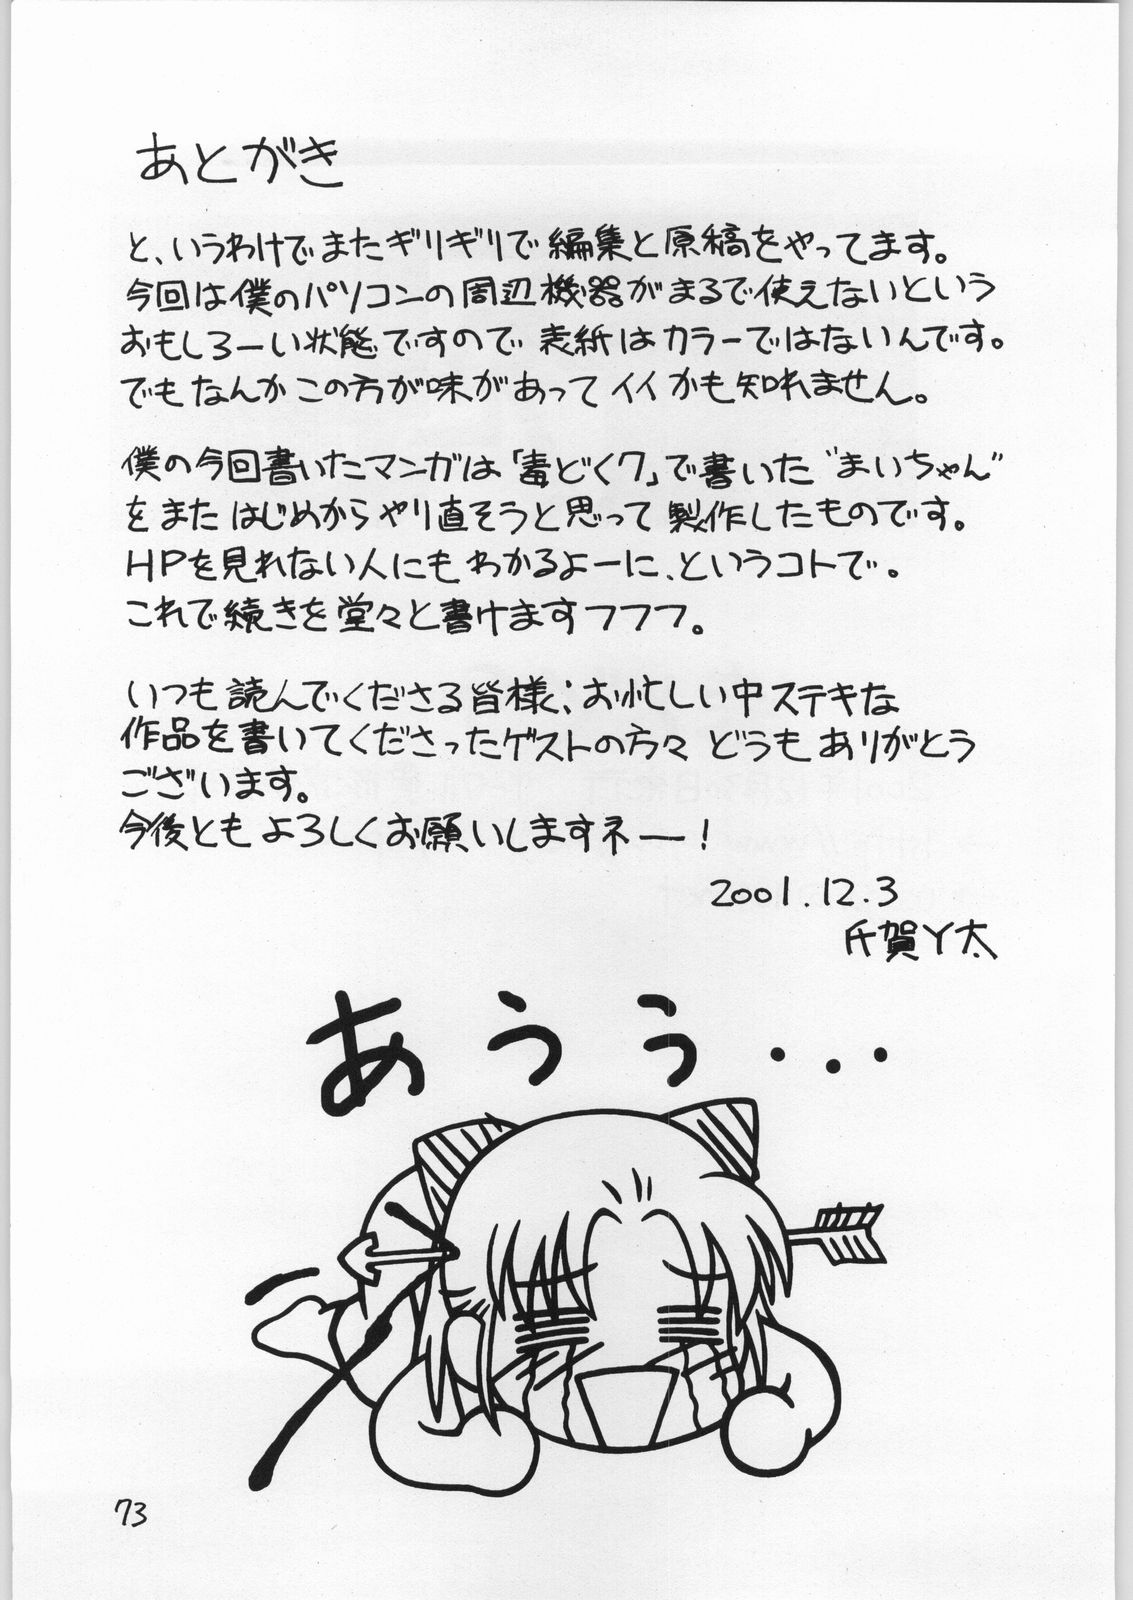 あとがき
と、いうわけでまたギリギリで編集と原稿をやってます。
今回は僕のパソコンの周辺機器がまるで使えないという
おもしろーい状態ですので表紙はカラーではないんです。
でもなんかこの方が味があってイイかも知れません。
僕の今回書いたマンガは「毒どく7」で書いた“まいちゃん”
をまたはじめからやり直そうと思って製作したものです。
HPを見れない人にもわかるよーに、というコトで。
これで続きを堂々と書けますフフフ。
いつも読んでくださる皆様;お忙しい中ステキな
作品を書いてくださったゲストの方々どうもありがとう
ございます。
今後ともよろしくお願いしますネー!
2001.12.3
氏賀Y太
あうぅ・・・
73